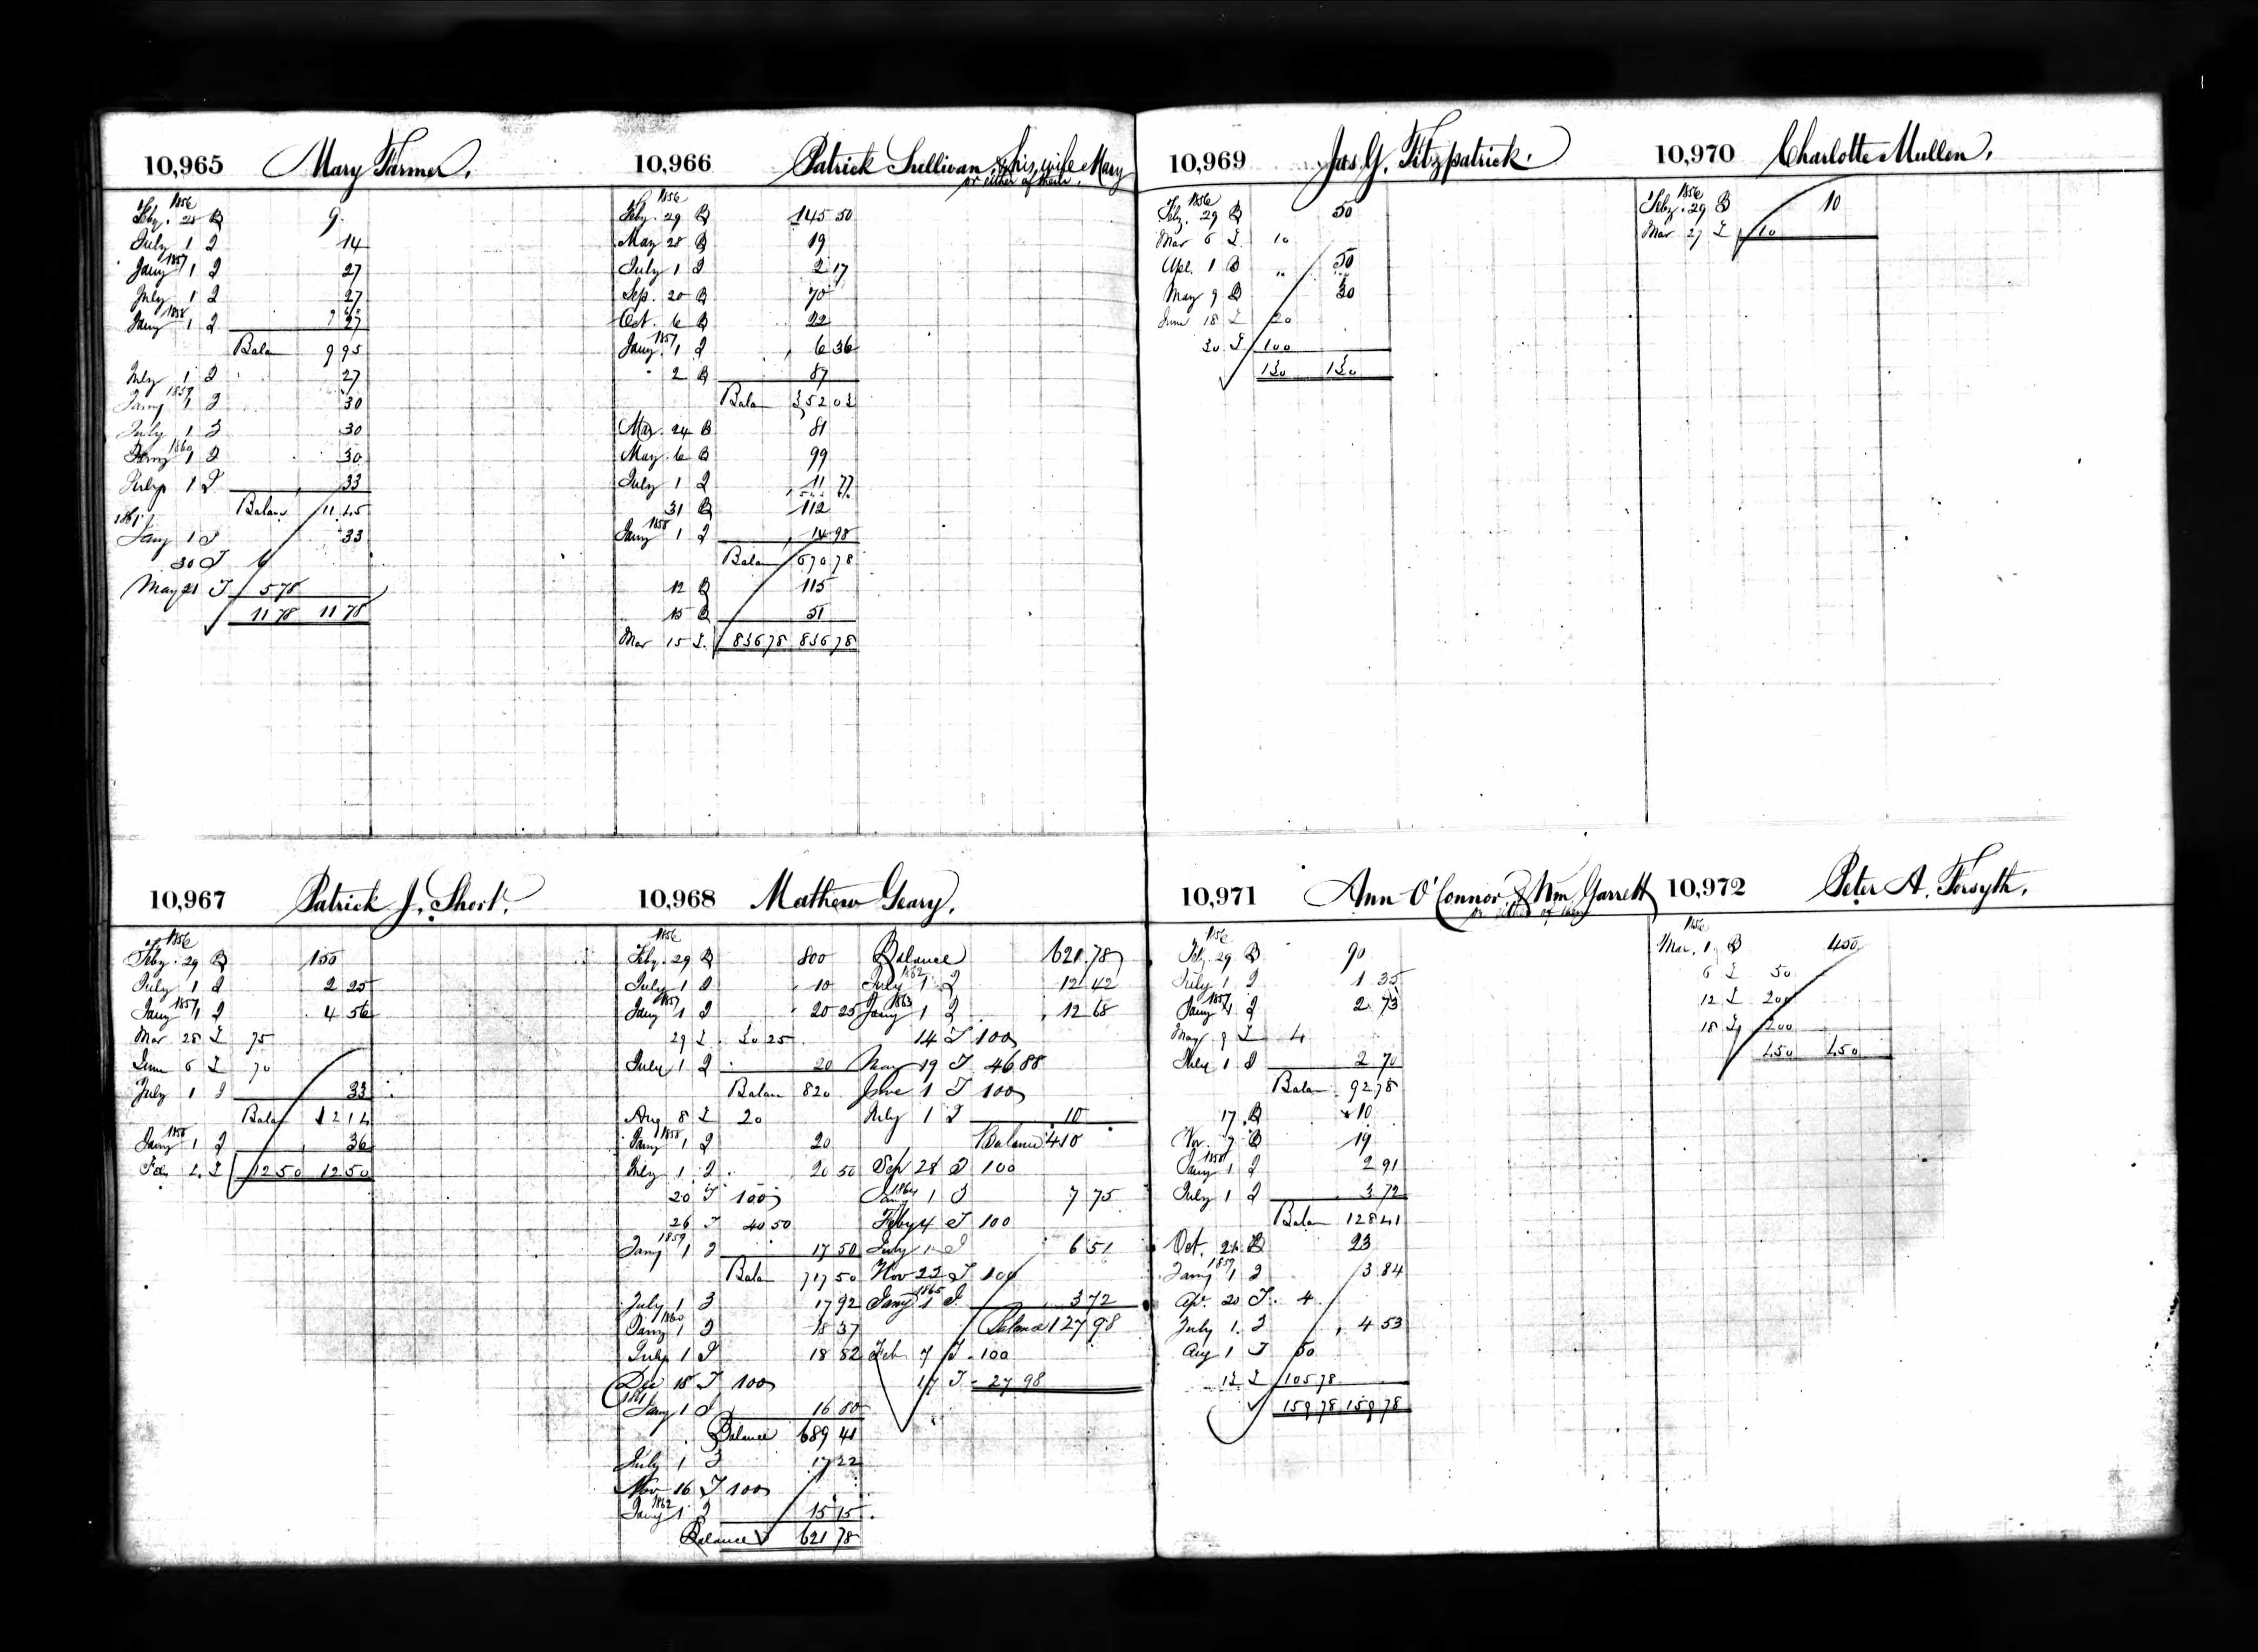 10,965 Mary Farmer.
1856
Feby. 28 B 9.
July 1 I 14
1857
Jany 1 I 27
July 1 I 27
1858
Jany 1 I 27
Balan 9 95
July 1 I 27
1859
Jany 1 I 30
July 1 I 30
1860
Jany 1 I 30
July 1 I 33
Balanc 11 45
1861
Jany 1 I 33
30 T 6
May 21 T 5 78
11 78 11 78
10,966 Patrick Sullivan & his wife Mary
or either of them.
1856
Feby. 29 B 145 50
May 28 B 19
July 1 I 2 17
Sep. 20 B 70
Oct. 6 B 22
1857
Jany. 1 I 6 36
2 B 87
Balan 352 03
Mar. 24 B 81
May. 6 B 99
July 1 I 11 77
31 B 112
1858
Jany 1 I 14 98
Balan 670 78
12 B 115
15 B 51
Mar 15 L. 836 78 836 78
10,967 Patrick J. Short.
1856
Feby. 29 B 150
July 1 I 2 25
1857
Jany 1 I 4 56
Mar 28 L 75
June 6 L 70
July 1 I 33
Balan 12 14
1858
Jany 1 I 36
12 50 12 50
10,968 Mathew Geary.
1856
Feby. 29 B 800
July 1 I 10
1857
Jany 1 I 20 25
29 L 30 25
July 1 I 20
Balan 820
Aug 8 L 20
1858
Jany 1 I 20
July 1 I 20 50
20 T 100
26 T 40 50
1859
Jany 1 I 17 50
Balan 717 50
July 1 I 17 92
1860
Jany 1 I 18 37
July 1 I 18 82
Dec 18 T 100
1861
Jany 1 I 16 80
Balance 689 41
July 1 I 17 22
Nov 16 T 100
1862
Jany 1 I 15 15
Balance 621 78
Balance 621.78
1862
July 1 I 12 42
1863
Jany 1 I 12 68
14 T 100
Mar 19 T 46 88
June 1 T 100
July 1 I 10
Balance 410
Sep 28 T 100
1864
Jany 1 I 7 75
Feby 4 T 100
July 1 I 6 51
Nov 22 T 100
1865
Jany 1 I 3 72
Balance 127 98
Feb 7 T 100
17 T 27 98
10,969 Jas. G. Fitzpatrick.
1856
Feby. 29 B 50
Mar 6 L 10
Apl. 1 B 50
May 9 B 30
June 18 L 20
30 L 100
130 130
10,970 Charlotte Mullen.
1856
Feby. 29 B 10
Mar 27 L 10
10,971 Ann O'Connor & Wm. Garrett
or either of them
1856
Feb. 29 B 90
July 1 I 1 35
1857
Jany 1 I 2 73
May 9 L 4
July 1 I 2 70
Balan 92 78
17. B 10
Nov. 7 B 19
1858
Jany 1 I 2 91
July 1 I 3 72
Balan 128 41
Oct. 21 B 23
1859
Jany 1 I 3 84
Ap. 20 T. 4
July 1. I 4 53
Aug 1 T 50
13 L 105 78
159 78 159 78
10,972 Peter A. Forsyth.
1856
Mar. 1 B 450
6 L 50
12 L 200
18 L 200
450 450